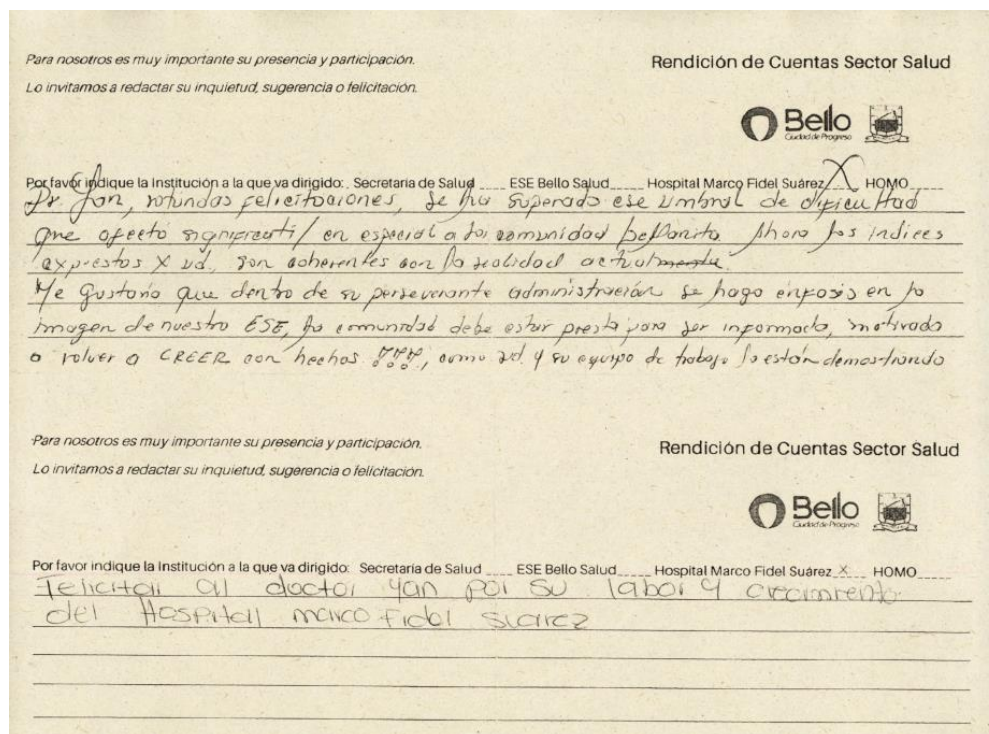 Para nosotros es muy importante su presencia y participación.
Lo invitamos a redactar su inquietud, sugerencia o felicitación.
Rendición de Cuentas Sector Salud
Bello
Ciudad de Progreso
Por favor indique la Institución a la que va dirigido: Secretaria de Salud ____ ESE Bello Salud ____ Hospital Marco Fidel Suárez X HOMO ____
Dr. Yan, rotundas felicitaciones, se ha superado ese umbral de dificultad
que afectó significati/ en especial a la comunidad bellanita. Ahora los índices
expuestos X ud, son coherentes con la realidad actualmente.
Me gustaria que dentro de su perseverante administración se haga énfasis en la
imagen de nuestro ESE, la comunidad debe estar presta para ser informada, motivada
a volver a CREER con hechos !!!, como ud. y su equipo de trabajo lo están demostrando
Para nosotros es muy importante su presencia y participación.
Lo invitamos a redactar su inquietud, sugerencia o felicitación.
Rendición de Cuentas Sector Salud
Bello
Ciudad de Progreso
Por favor indique la Institución a la que va dirigido: Secretaria de Salud ____ ESE Bello Salud ____ Hospital Marco Fidel Suárez X HOMO ____
Felicitar al doctor Yan por su labor y crecimiento
del Hospital marco Fidel Suarez